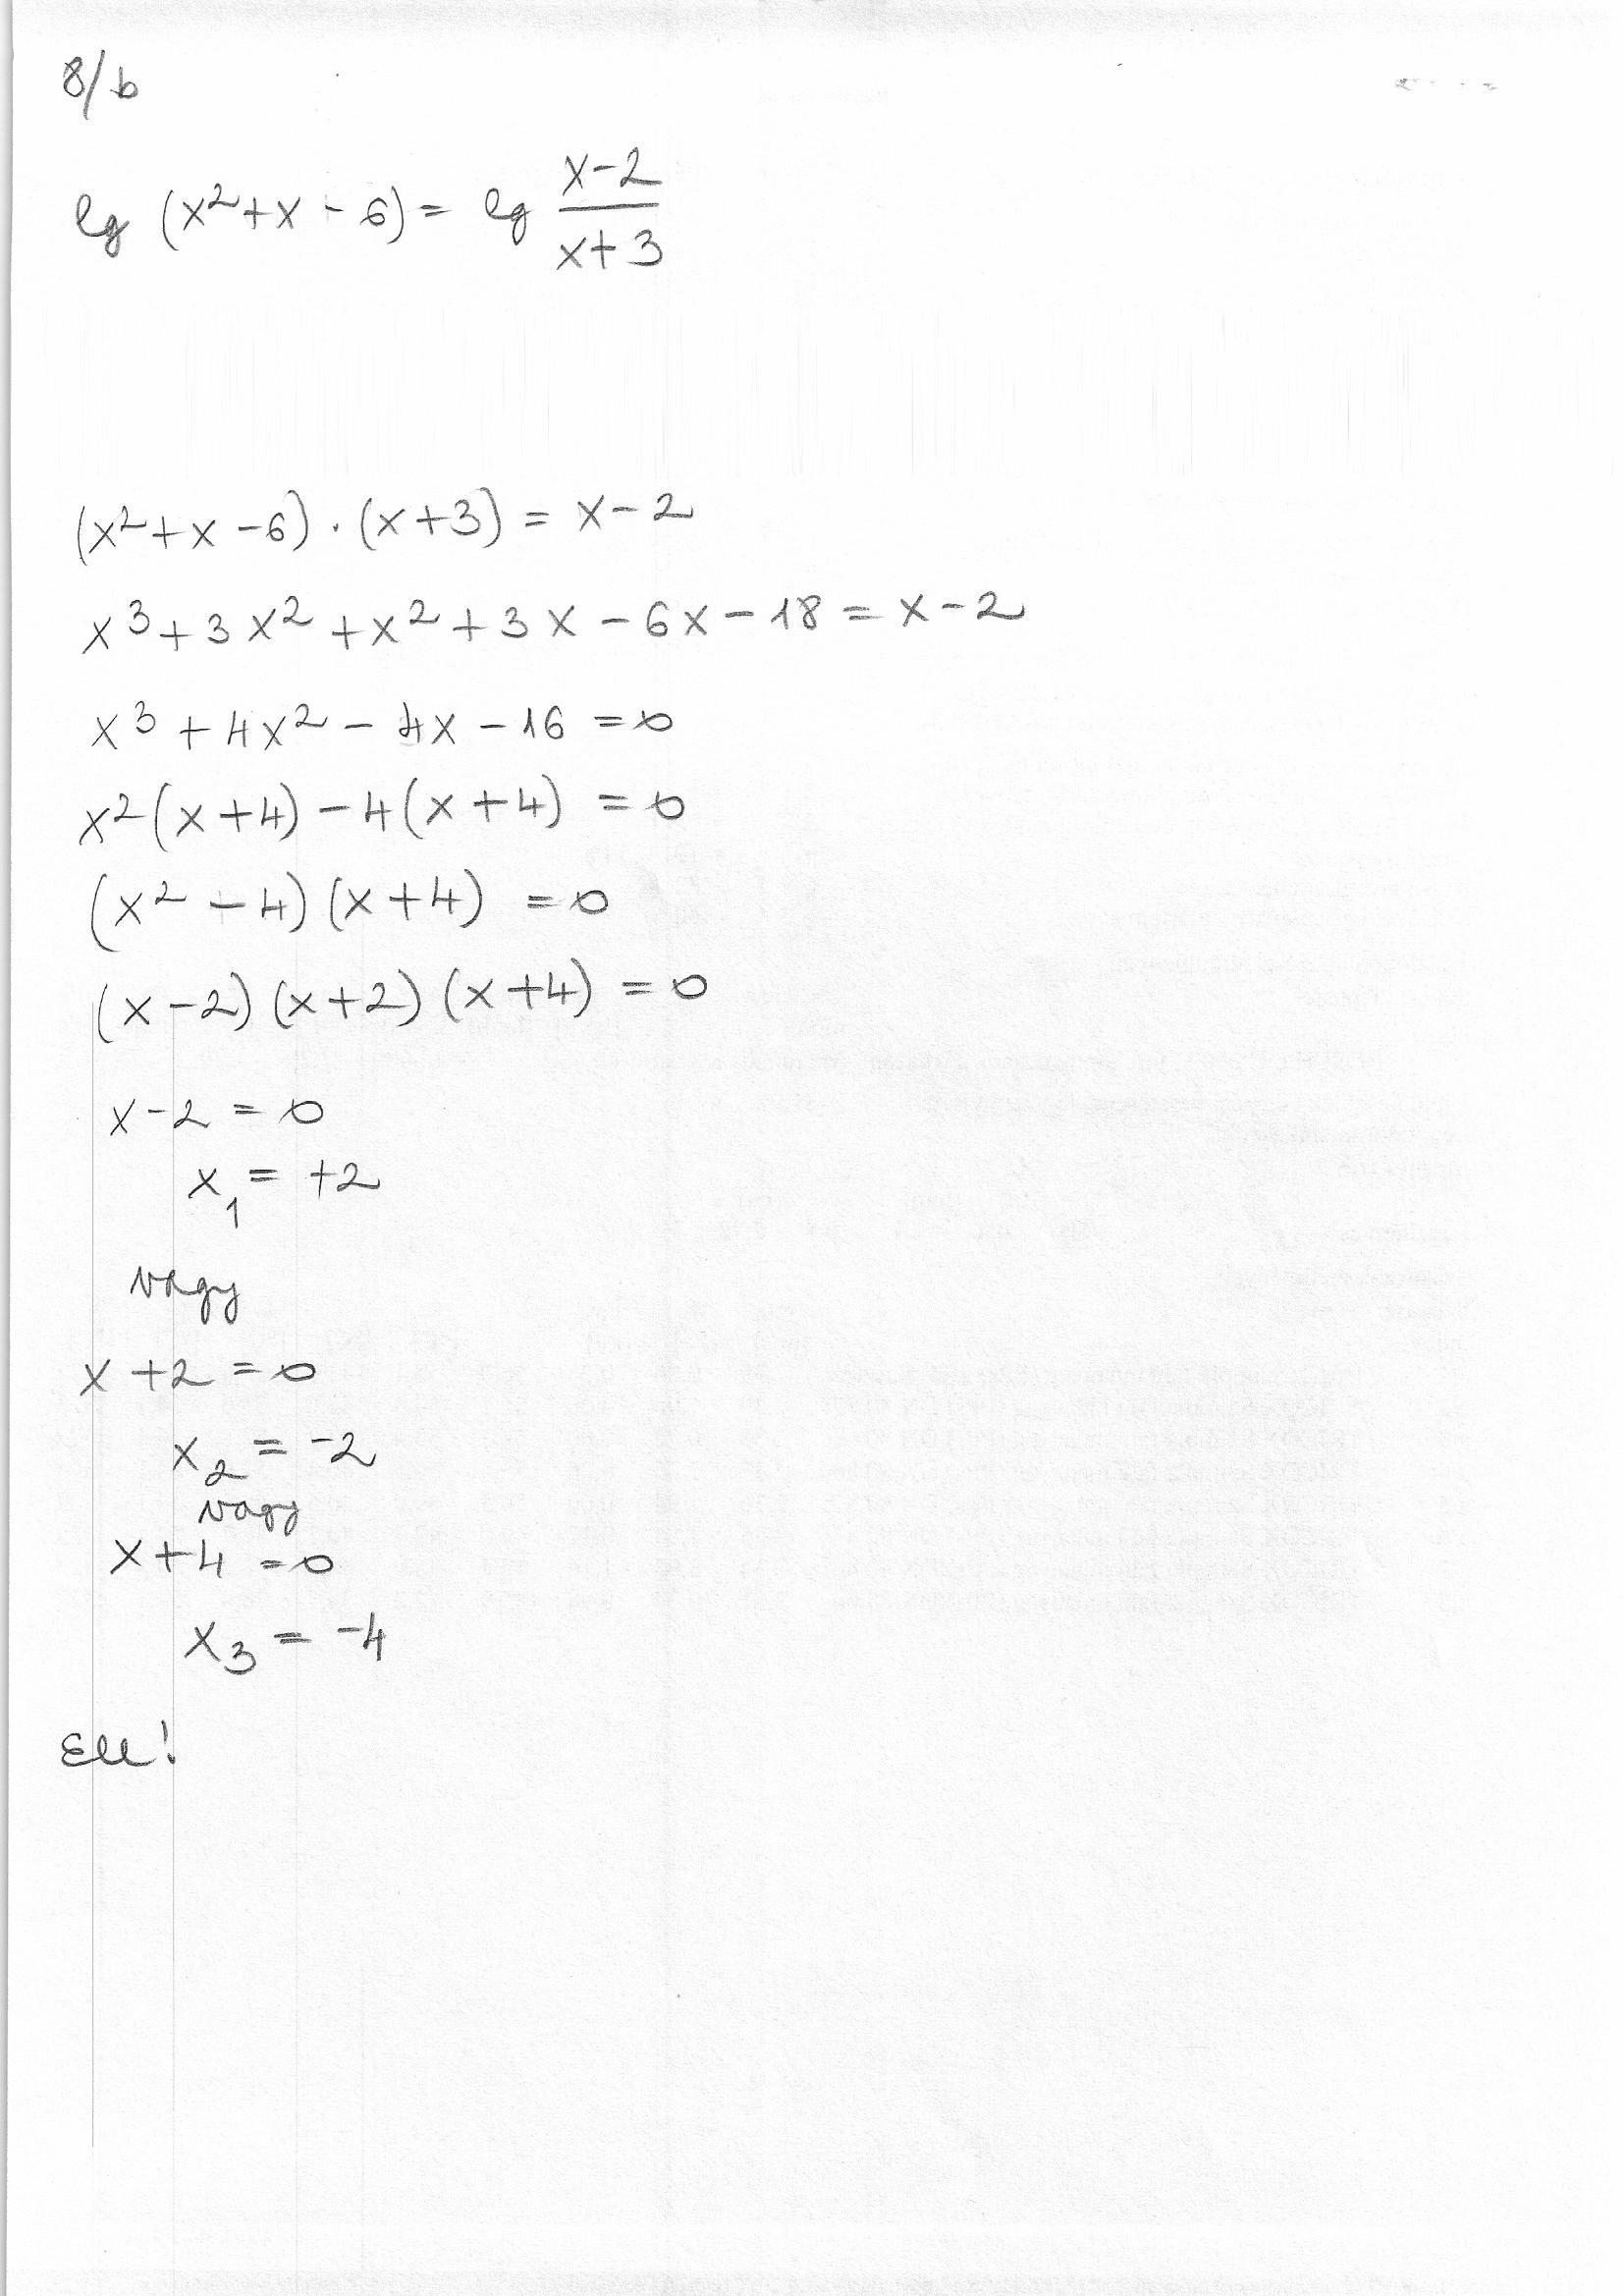 8/b
lg (x²+x-6) = lg \frac{x-2}{x+3}
(x²+x-6)·(x+3) = x-2
x³+3x²+x²+3x-6x-18 = x-2
x³+4x²-4x-16 = 0
x²(x+4)-4(x+4) = 0
(x²-4)(x+4) = 0
(x-2)(x+2)(x+4) = 0
x-2 = 0
x₁ = +2
vagy
x+2 = 0
x₂ = -2
vagy
x+4 = 0
x₃ = -4
Ell!